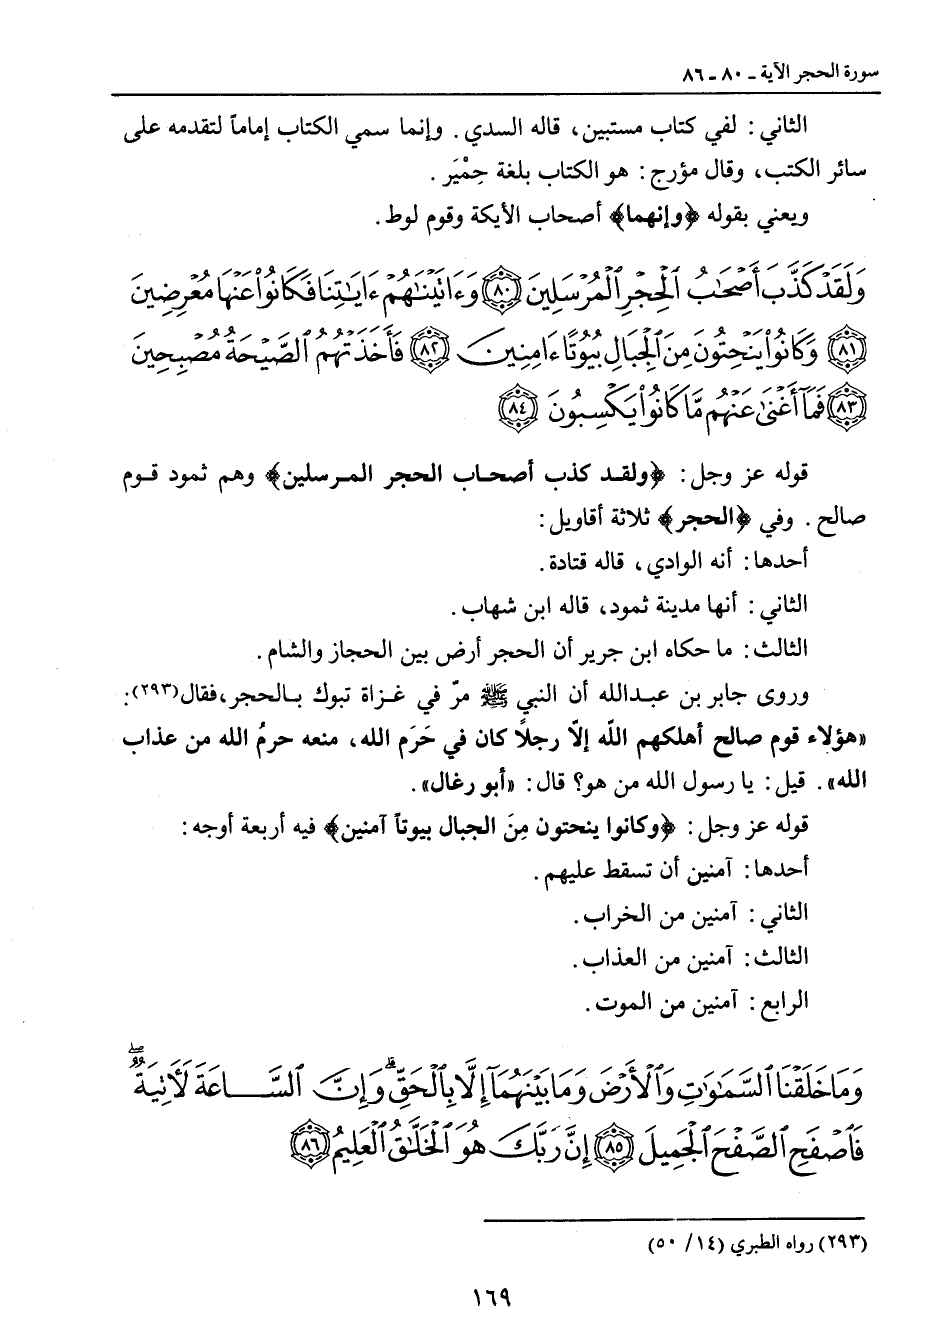 سورة الحجر الآية - ٨٠ - ٨٦
الثاني : لفي كتاب مستبين، قاله السدي . وإنما سمي الكتاب إماماً لتقدمه على
سائر الكتب، وقال مؤرج : هو الكتاب بلغة حِمْيَر .
ويعني بقوله ﴿وإنهما﴾ أصحاب الأيكة وقوم لوط.
وَلَقَدْ كَذَّبَ أَصْحَٰبُ ٱلْحِجْرِ ٱلْمُرْسَلِينَ ٨٠ وَءَاتَيْنَٰهُمْ ءَايَٰتِنَا فَكَانُوا۟ عَنْهَا مُعْرِضِينَ
٨١ وَكَانُوا۟ يَنْحِتُونَ مِنَ ٱلْجِبَالِ بُيُوتًا ءَامِنِينَ ٨٢ فَأَخَذَتْهُمُ ٱلصَّيْحَةُ مُصْبِحِينَ
٨٣ فَمَآ أَغْنَىٰ عَنْهُم مَّا كَانُوا۟ يَكْسِبُونَ ٨٤
قوله عز وجل : ﴿ولقد كذب أصحاب الحجر المرسلين﴾ وهم ثمود قوم
صالح . وفي ﴿الحجر﴾ ثلاثة أقاويل :
أحدها : أنه الوادي، قاله قتادة .
الثاني : أنها مدينة ثمود، قاله ابن شهاب .
الثالث : ما حكاه ابن جرير أن الحجر أرض بين الحجاز والشام .
وروى جابر بن عبدالله أن النبي ﷺ مرّ في غزاة تبوك بالحجر،فقال(٢٩٣):
«هؤلاء قوم صالح أهلكهم اللّه إلاّ رجلاً كان في حَرَم الله، منعه حرمُ الله من عذاب
الله». قيل : يا رسول الله من هو؟ قال : «أبو رغال».
قوله عز وجل : ﴿وكانوا ينحتون مِنَ الجبال بيوتاً آمنين﴾ فيه أربعة أوجه :
أحدها : آمنين أن تسقط عليهم .
الثاني : آمنين من الخراب .
الثالث : آمنين من العذاب .
الرابع : آمنين من الموت .
وَمَا خَلَقْنَا ٱلسَّمَٰوَٰتِ وَٱلْأَرْضَ وَمَا بَيْنَهُمَآ إِلَّا بِٱلْحَقِّ ۗ وَإِنَّ ٱلسَّاعَةَ لَءَاتِيَةٌ ۖ
فَٱصْفَحِ ٱلصَّفْحَ ٱلْجَمِيلَ ٨٥ إِنَّ رَبَّكَ هُوَ ٱلْخَلَّٰقُ ٱلْعَلِيمُ ٨٦
(٢٩٣) رواه الطبري (١٤/ ٥٠)
١٦٩